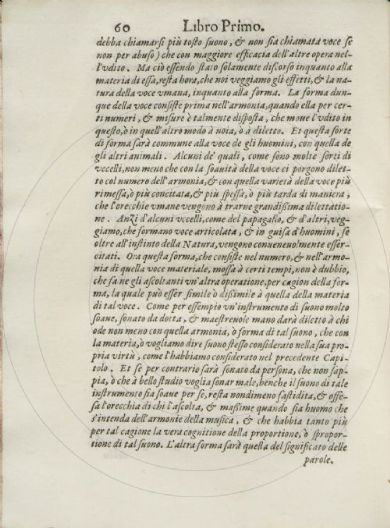 60 Libro Primo.
debba chiamarsi più tosto suono, & non sia chiamata voce se
non per abuso) che con maggiore efficacia dell'altre opera nel-
l'vdito. Ma ciò essendo stato solamente discorso inquanto alla
materia di essa, resta hora, che noi veggiamo gli effetti, & la na-
tura della voce vmana, inquanto alla forma. La forma dun-
que della voce consiste prima nell'armonia, quando ella per cer-
ti numeri, & misure è talmente disposta, che moue l'vdito in
questo, ò in quell'altro modo à noia, ò à diletto. Et questa sorte
di forma sarà commune alla voce de gli huomini, con quella de
gli altri animali. Alcuni de' quali, come sono molte sorti di
vccelli, non meno che con la soauità della voce ci porgono dilet-
to col numero dell'armonia, & con quella varietà della voce più
rimessa, ò più concitata, & più spessa, ò più tarda di maniera,
che l'orecchie vmane vengono à trarne grandissima dilettatio-
ne. Anzi d'alcuni vccelli, come del papagallo, & d'altri, veg-
giamo, che formano voce articolata, & in guisa d'huomini, se
oltre all'instinto della Natura, vengono conueneuolmente esser-
citati. Ora questa forma, che consiste nel numero, & nell'armo-
nia di quella voce materiale, mossa à certi tempi, non è dubbio,
che fa ne gli ascoltanti vn'altra operatione, per cagion della for-
ma, la quale può esser simile ò disimile à quella della materia
di tal voce. Come per essempio vn'instrumento di suono molto
soaue, sonato da dotta, & maestreuole mano darà diletto à chi
ode non meno con quella armonia, ò forma di tal suono, che con
la materia, ò vogliamo dire suono stesso considerato nella sua pro-
pria virtù, come l'habbiamo considerato nel precedente Capi-
tolo. Et se per contrario sarà sonato da persona, che non sap-
pia, ò che à bello studio voglia sonar male, benche il suono di tale
instrumento sia soaue per se, resta nondimeno fastidita, & offe-
sa l'orecchia di chi l'ascolta, & massime quando sia huomo che
s'intenda dell'armonie della musica, & che habbia tanto più
per tal cagione la vera cognitione della proportione, ò spropor-
tione di tal suono. L'altra forma sarà quella del significato delle
parole.